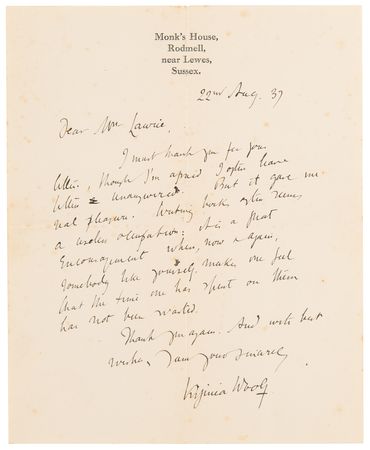 Monk's House,
Rodmell,
near Lewes,
Sussex.
22nd Aug. 37
Dear Mrs Lawrie,
I must thank you for your
letter, though I'm afraid I often leave
letters unanswered. But it gave me
real pleasure. Writing books often seems
a useless occupation; it is a great
Encouragement when, now & again,
somebody like yourself makes one feel
that the time one has spent on them
has not been wasted.
Thank you again. And with best
wishes, I am yours sincerely
Virginia Woolf